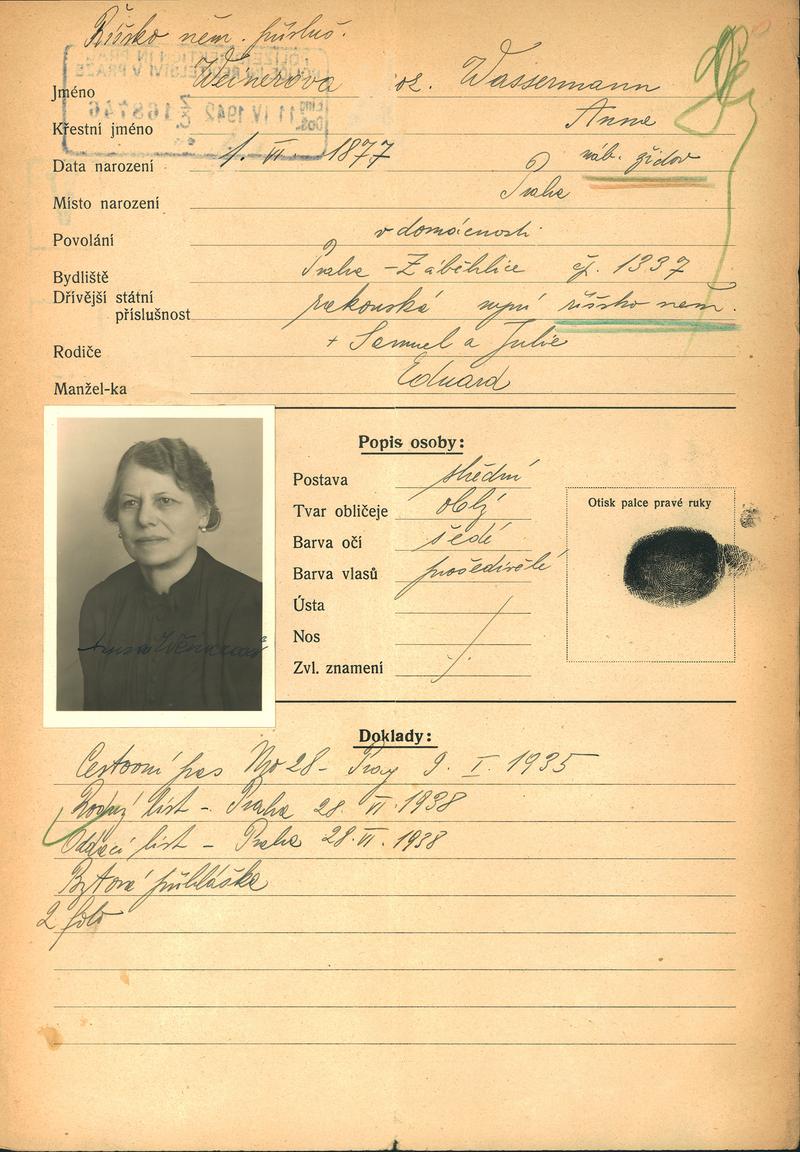 Říšsko něm. přísluš.
POLIZEIDIREKTION IN PRAG
POLICEJNÍ ŘEDITELSTVÍ V PRAZE
Eing. Doš. 11 IV 1942 168746
Jméno Weinerová oz. Wassermann
Křestní jméno Anna
Data narození 1. VI. 1877 náb. židov
Místo narození Praha
Povolání v domácnosti
Bydliště Praha - Záběhlice čp. 1337
Dřívější státní
příslušnost rakouská nyní říšsko něm.
Rodiče + Samuel a Julie
Manžel-ka Eduard
Popis osoby:
Postava střední
Tvar obličeje oblý
Barva očí šedé
Barva vlasů prošedivělé
Ústa
Nos
Zvl. znamení
Otisk palce pravé ruky
Anna Weinerová
Doklady:
Cestovní pas No 28 - Prag 9. I. 1935
Rodný list - Praha 28. VI. 1938
Oddací list - Praha 28. VI. 1938
Bytová přihláška
2 foto